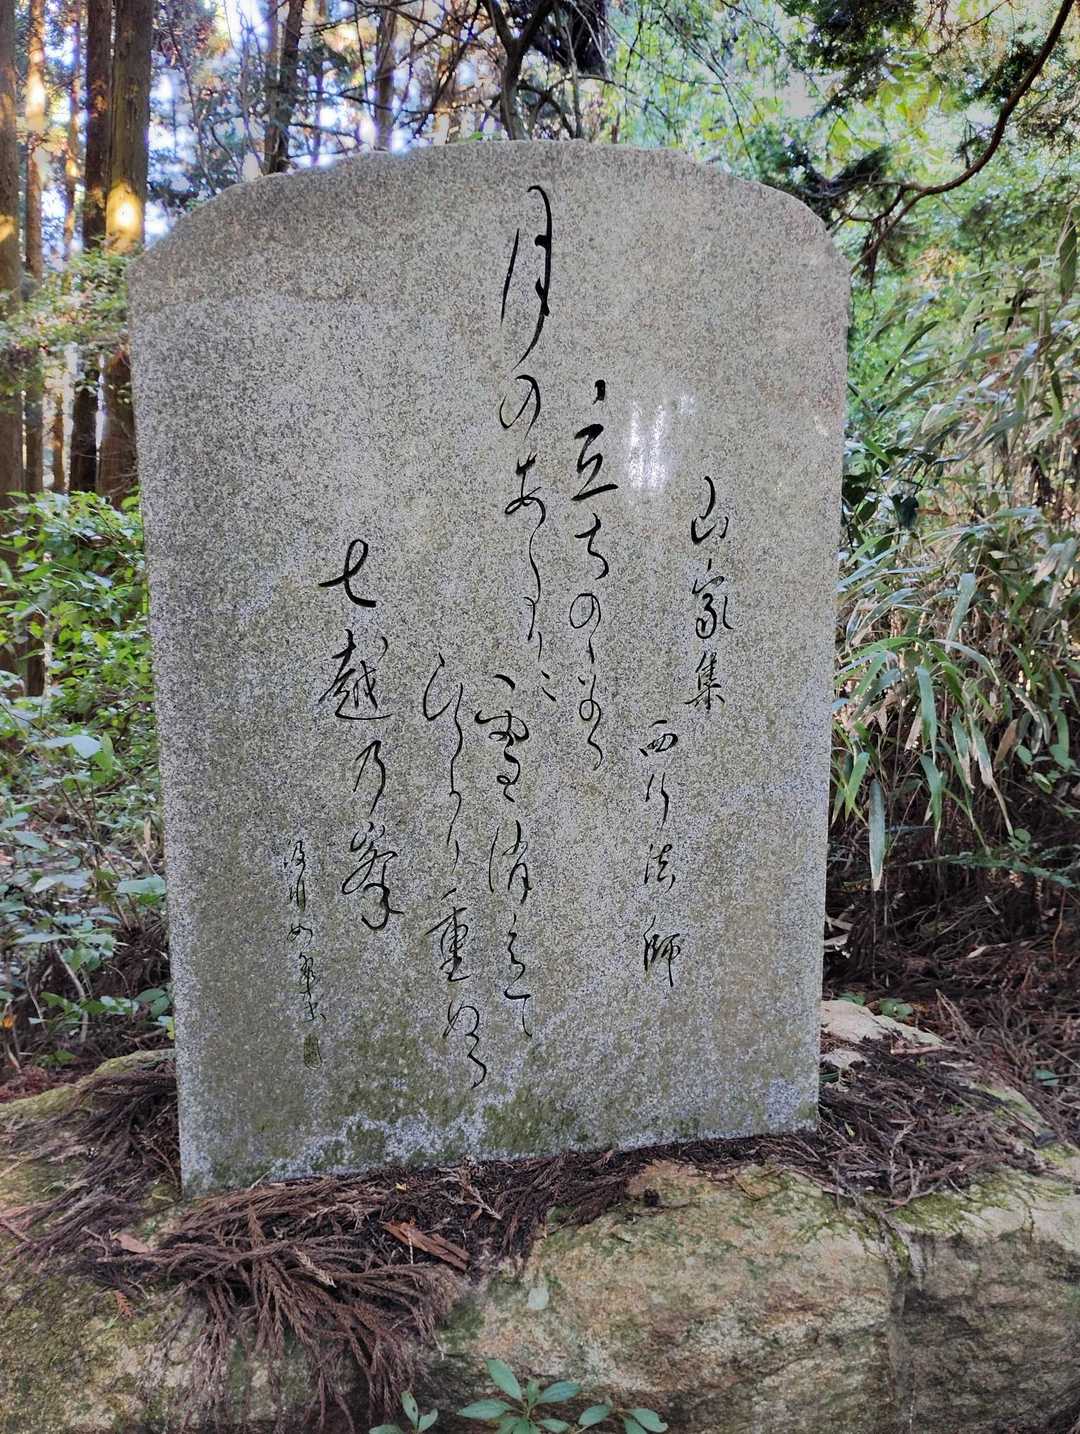 山家集
西行法師
立ちのぼる
月のあたりに
雲消えて
ひかり重ぬる
七越乃峯